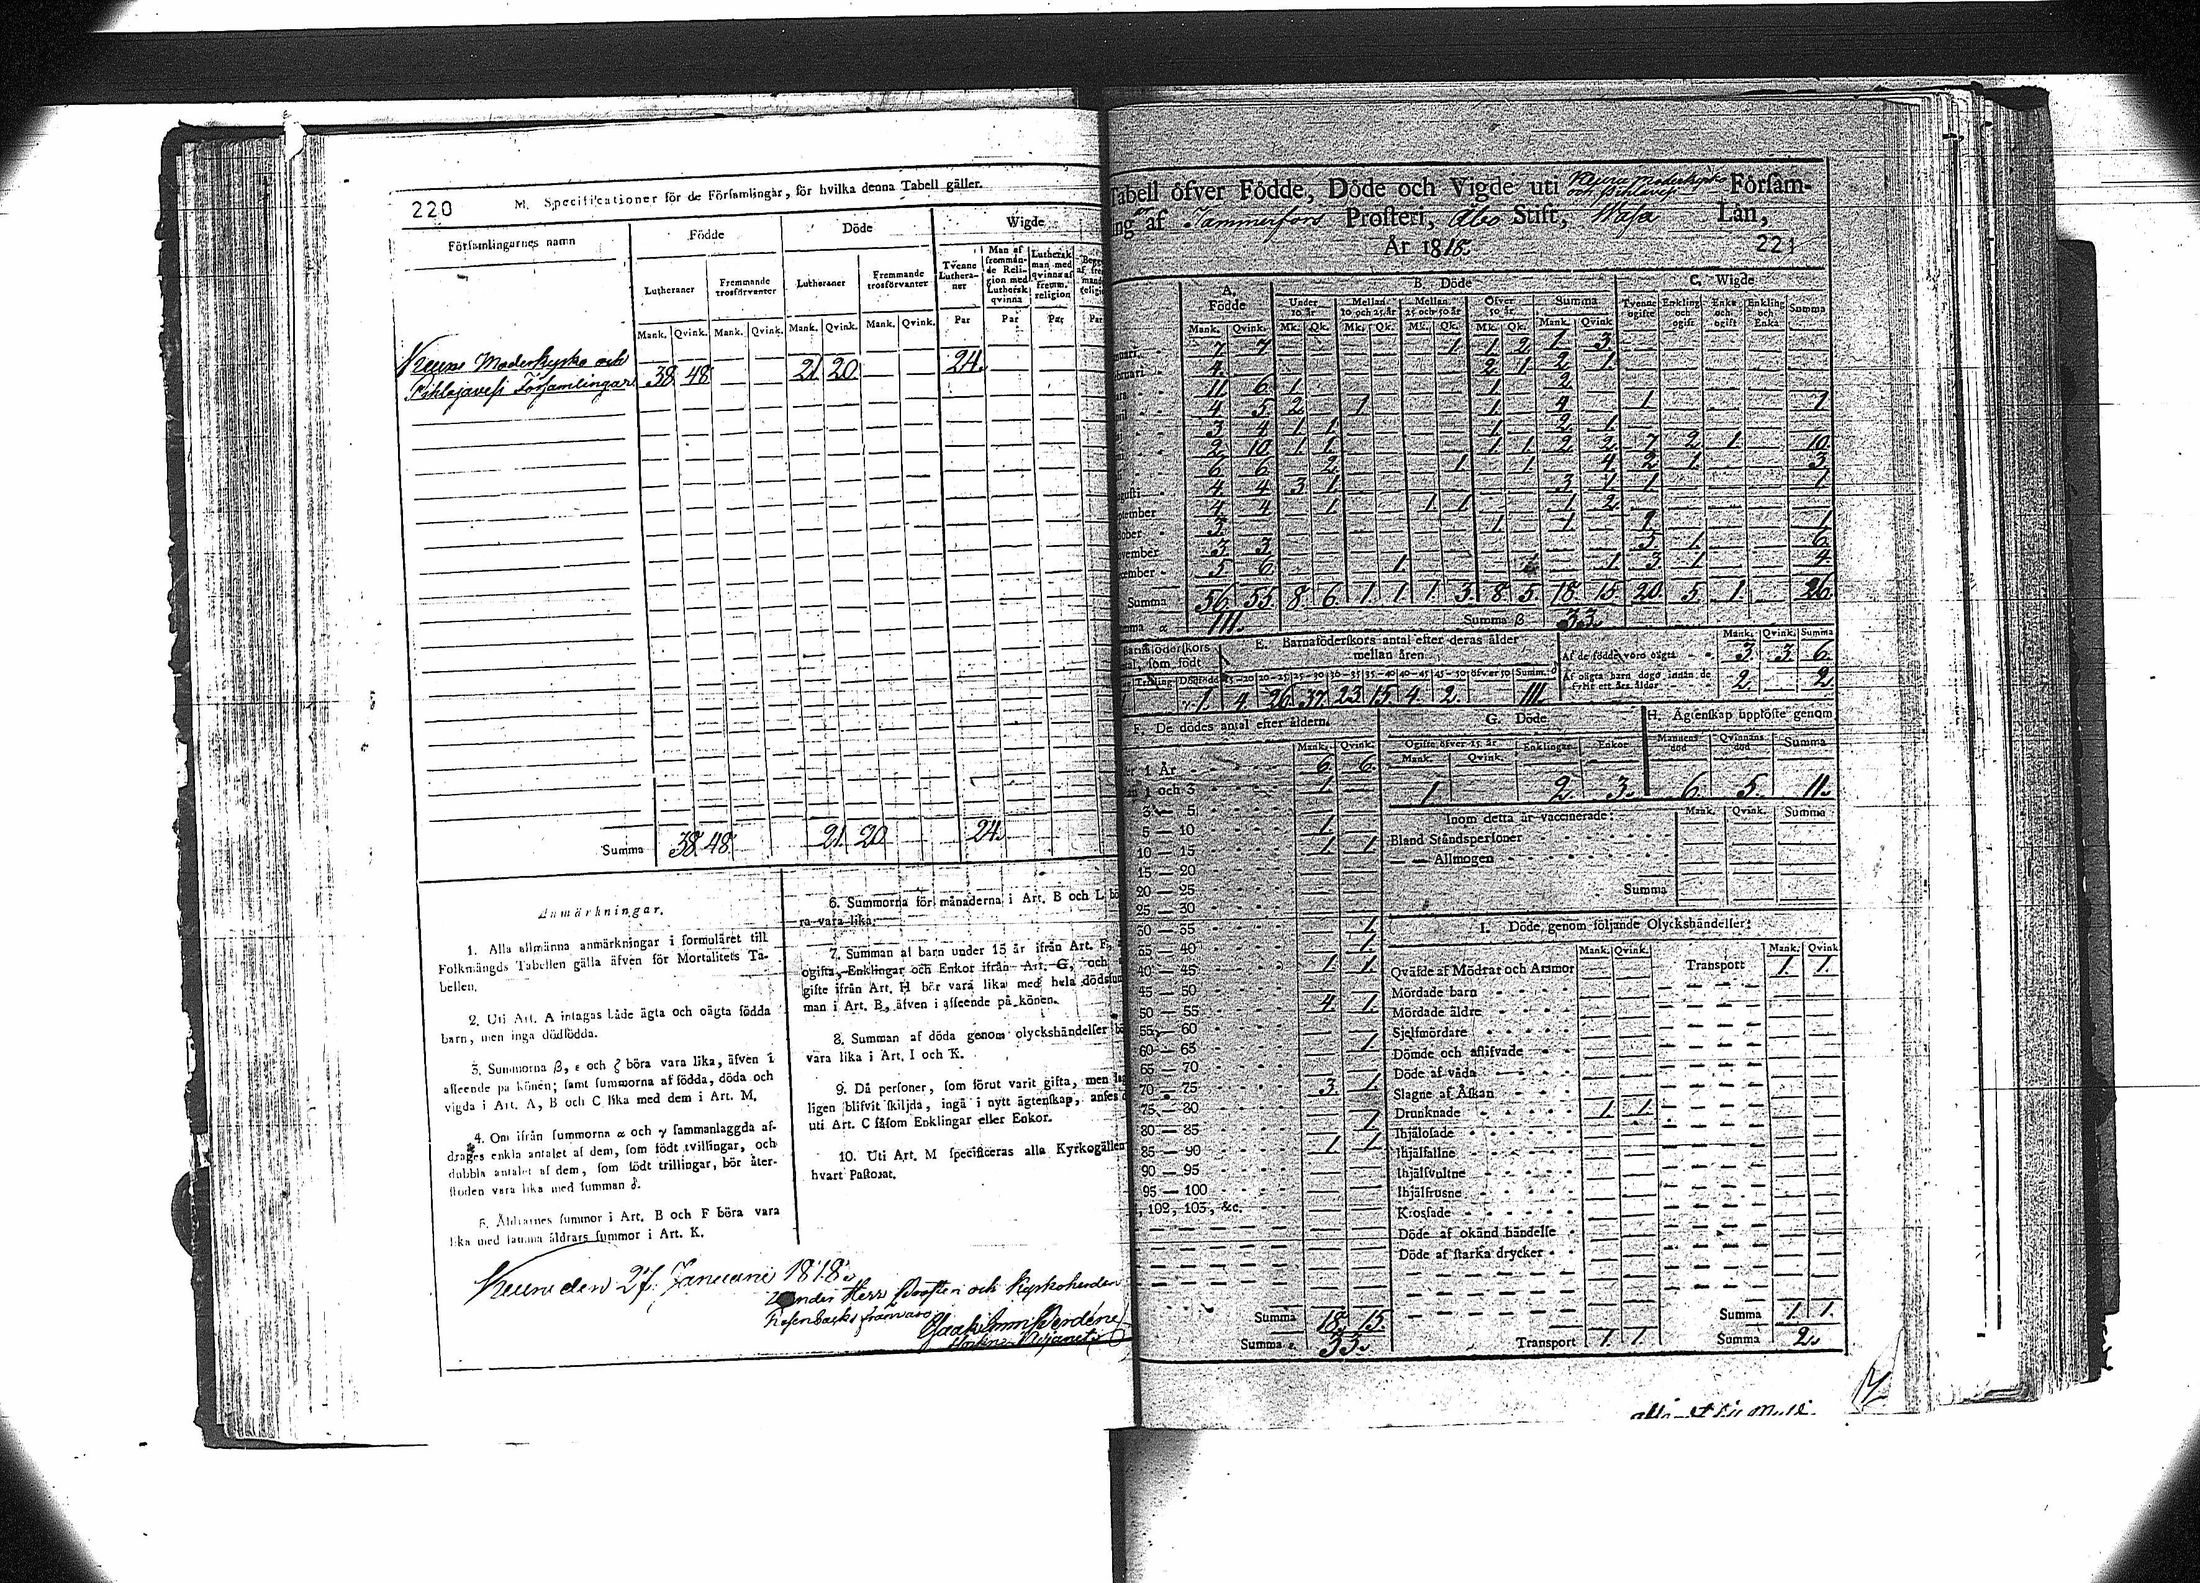 220
M. Specificationer för de Församlingar, för hvilka denna Tabell gäller.
Församlingarnes namn
Födde
Döde
Wigde
Lutheraner
Fremmande trosförvanter
Lutheraner
Fremmande trosförvanter
Tvenne Lutheraner
Man af frommande Religion med Luthersk qvinna
Luthersk man med qvinna af fremm. religion
Mank. Qvink. Mank. Qvink. Mank. Qvink. Mank. Qvink. Par Par Par Par
Keuru Moderkyrko och
Pihlajavesi Församlingar 38 48 21 20 24.
Summa 38 48 21. 20 24.
Anmärkningar.
1. Alla allmänna anmärkningar i formuläret till
Folkmängds Tabellen gälla äfven för Mortalitets Ta-
bellen.
2. Uti Art. A intagas både ägta och oägta födda
barn, men inga dödfödda.
3. Summorna β, ε och ζ böra vara lika, äfven i
afseende på könen; samt summorna af födda, döda och
vigda i Art. A, B och C lika med dem i Art. M.
4. Om ifrån summorna α och γ sammanlaggda af-
drages enkla antalet af dem, som födt tvillingar, och
dubbla antalet af dem, som födt trillingar, bör åter-
stoden vara lika med summan δ.
5. Åldrarnes summor i Art. B och F böra vara
lika med samma åldrars summor i Art. K.
6. Summorna för månaderna i Art. B och L bö
ra vara lika.
7. Summan af barn under 15 år ifrån Art. F,
ogifta, Enklingar och Enkor ifrån Art. G, och
gifte ifrån Art. H bör vara lika med hela dödssum
man i Art. B, äfven i afseende på könen.
8. Summan af döda genom olyckshändelser bö
vara lika i Art. I och K.
9. Då personer, som förut varit gifta, men lag
ligen blifvit skiljda, ingå i nytt ägtenskap, anses d
uti Art. C såsom Enklingar eller Enkor.
10. Uti Art. M specificeras alla Kyrkogällen
hvart Pastorat.
Keuru den 27. Januarii 1818.
Under Herr Prosten och Kyrkoherden
Rosenbacks frånvaro
Tabell öfver Födde, Döde och Vigde uti Keuru Moderkyrko och Pihlavesi Försam-
ing af Tammerfors Prosteri, Åbo Stift, Wasa Län,
År 1818. 221
A. Födde
B. Döde
C. Wigde
Under 10 år
Mellan 10 och 25 år
Mellan 25 och 50 år
Öfver 50 år
Summa
Tvenne ogifte
Enkling och ogift
Enka och ogift
Enkling och Enka
Summa
Mank. Qvink. Mk. Qk. Mk. Qk. Mk. Qk. Mk. Qk. Mank. Qvink.
nuari 7. 7 1 1. 2 1. 3.
bruari 4. 2 1 2 1.
11. 6 1. 1 2
4 5 2 1 1. 4 1 1
3 4 1 1. 1. 2 1.
2 10 1 1. 1 1 2 2 7 2 1. 10
6 6 2. 1 1. 4 2 1. 3
gusti 4. 4 3 1 3 1 1 1
ptember 4 4 1 1 1 1 2
tober 3. 1 1 1
vember 3 3 5 1. 6.
cember 5 6 1. 1 3 1 4
Summa 56 55 8. 6. 1. 1 1. 3. 8 5 18. 15. 20. 5. 1. 26.
Summa α 111. Summa β 33.
E. Barnaföderskors antal efter deras ålder
mellan åren
Trilling Dödfödde 15-20 20-25 25-30 30-35 35-40 40-45 45-50 öfver 50 Summ. δ
1. 4. 26. 37. 23. 15. 4. 2. 111.
Mank. Qvink. Summa
Af de födde voro oägta 3. 3. 6
Af oägta barn dogo innan de fyllt ett års ålder 2. 2.
F. De dödes antal efter åldern.
Mank. Qvink.
er 1 År 6. 6.
1 och 3 1.
3 — 5
5 — 10 1.
10 — 15 1. 1
15 — 20
20 — 25
25 — 30
30 — 35 1
35 — 40 1.
40 — 45 1. 1
45 — 50
50 — 55 4 1.
55 — 60
60 — 65 1
65 — 70
70 — 75 3. 1.
75 — 80
80 — 85 1
85 — 90 1 1
90 — 95
95 — 100
, 102, 103, &c.
Summa 18. 15.
Summa ε 33.
G. Döde
Ogifte öfver 15 år
Enklingar
Enkor
Mank. Qvink.
1 2. 3.
H. Ägtenskap upplöste genom
Mannens död
Qvinnans död
Summa
6. 5. 11.
Inom detta år vaccinerade: Mank. Qvink. Summa
Bland Ståndspersoner
— — Allmogen
Summa
I. Döde genom följande Olyckshändelser:
Mank. Qvink. Mank. Qvink
Qväfde af Mödrar och Ammor Transport 1. 1.
Mördade barn
Mördade äldre
Sjelfmördare
Dömde och aflifvade
Döde af våda
Slagne af Åskan
Drunknade 1. 1.
Ihjälosade
Ihjälfallne
Ihjälsvultne
Ihjälfrusne
Krossade
Döde af okänd händelse
Döde af starka drycker
Summa 1. 1.
Transport 1. 1. Summa 2.